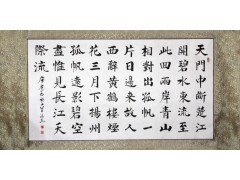 天門中斷楚江
開碧水東流至
此回兩岸青山
相對出孤帆一
片日邊來故人
西辭黃鶴樓煙
花三月下揚州
孤帆遠影碧空
盡惟見長江天
際流